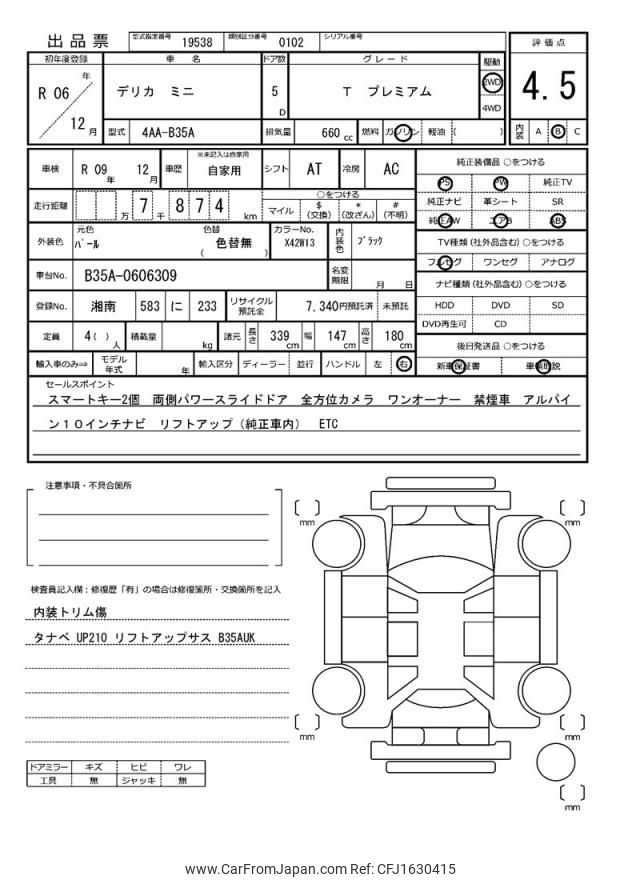 出品票 型式指定番号 19538 類別区分番号 0102 シリアル番号
評価点
4.5
内装 A B C
初年度登録 車名 ドア数 グレード 駆動
R 06 年 12 月
デリカ ミニ 5 D T プレミアム 2WD 4WD
型式 4AA-B35A 排気量 660 cc 燃料 ガソリン 軽油 ( )
車検 R 09 年 12 月 車歴 ※未記入は自家用 自家用 シフト AT 冷房 AC
走行距離 万 7 千 8 7 4 km
○をつける
マイル $ (交換) * (改ざん) # (不明)
外装色 元色 パール 色替 ( 色替無 ) カラーNo. X42W13 内装色 ブラック
車台No. B35A-0606309 名変期限 月 日
登録No. 湘南 583 に 233 リサイクル預託金 7,340円預託済 未預託
定員 4( ) 人 積載量 kg 諸元 長さ 339 cm 幅 147 cm 高さ 180 cm
輸入車のみ⇒ モデル年式 年 輸入区分 ディーラー 並行 ハンドル 左 右
純正装備品 ○をつける
PS PW 純正TV
純正ナビ 革シート SR
純正AW エアB ABS
TV種類 (社外品含む) ○をつける
フルセグ ワンセグ アナログ
ナビ種類 (社外品含む) ○をつける
HDD DVD SD
DVD再生可 CD
後日発送品 ○をつける
新車保証書 車輌取説
セールスポイント
スマートキー2個 両側パワースライドドア 全方位カメラ ワンオーナー 禁煙車 アルパイ
ン10インチナビ リフトアップ(純正車内) ETC
注意事項・不具合箇所
検査員記入欄:修復歴「有」の場合は修復箇所・交換箇所を記入
内装トリム傷
タナベ UP210 リフトアップサス B35AUK
ドアミラー キズ ヒビ ワレ
工具 無 ジャッキ 無
[ ] mm
[ ] mm
[ ] mm
[ ] mm
[ ] mm
www.CarFromJapan.com Ref: CFJ1630415